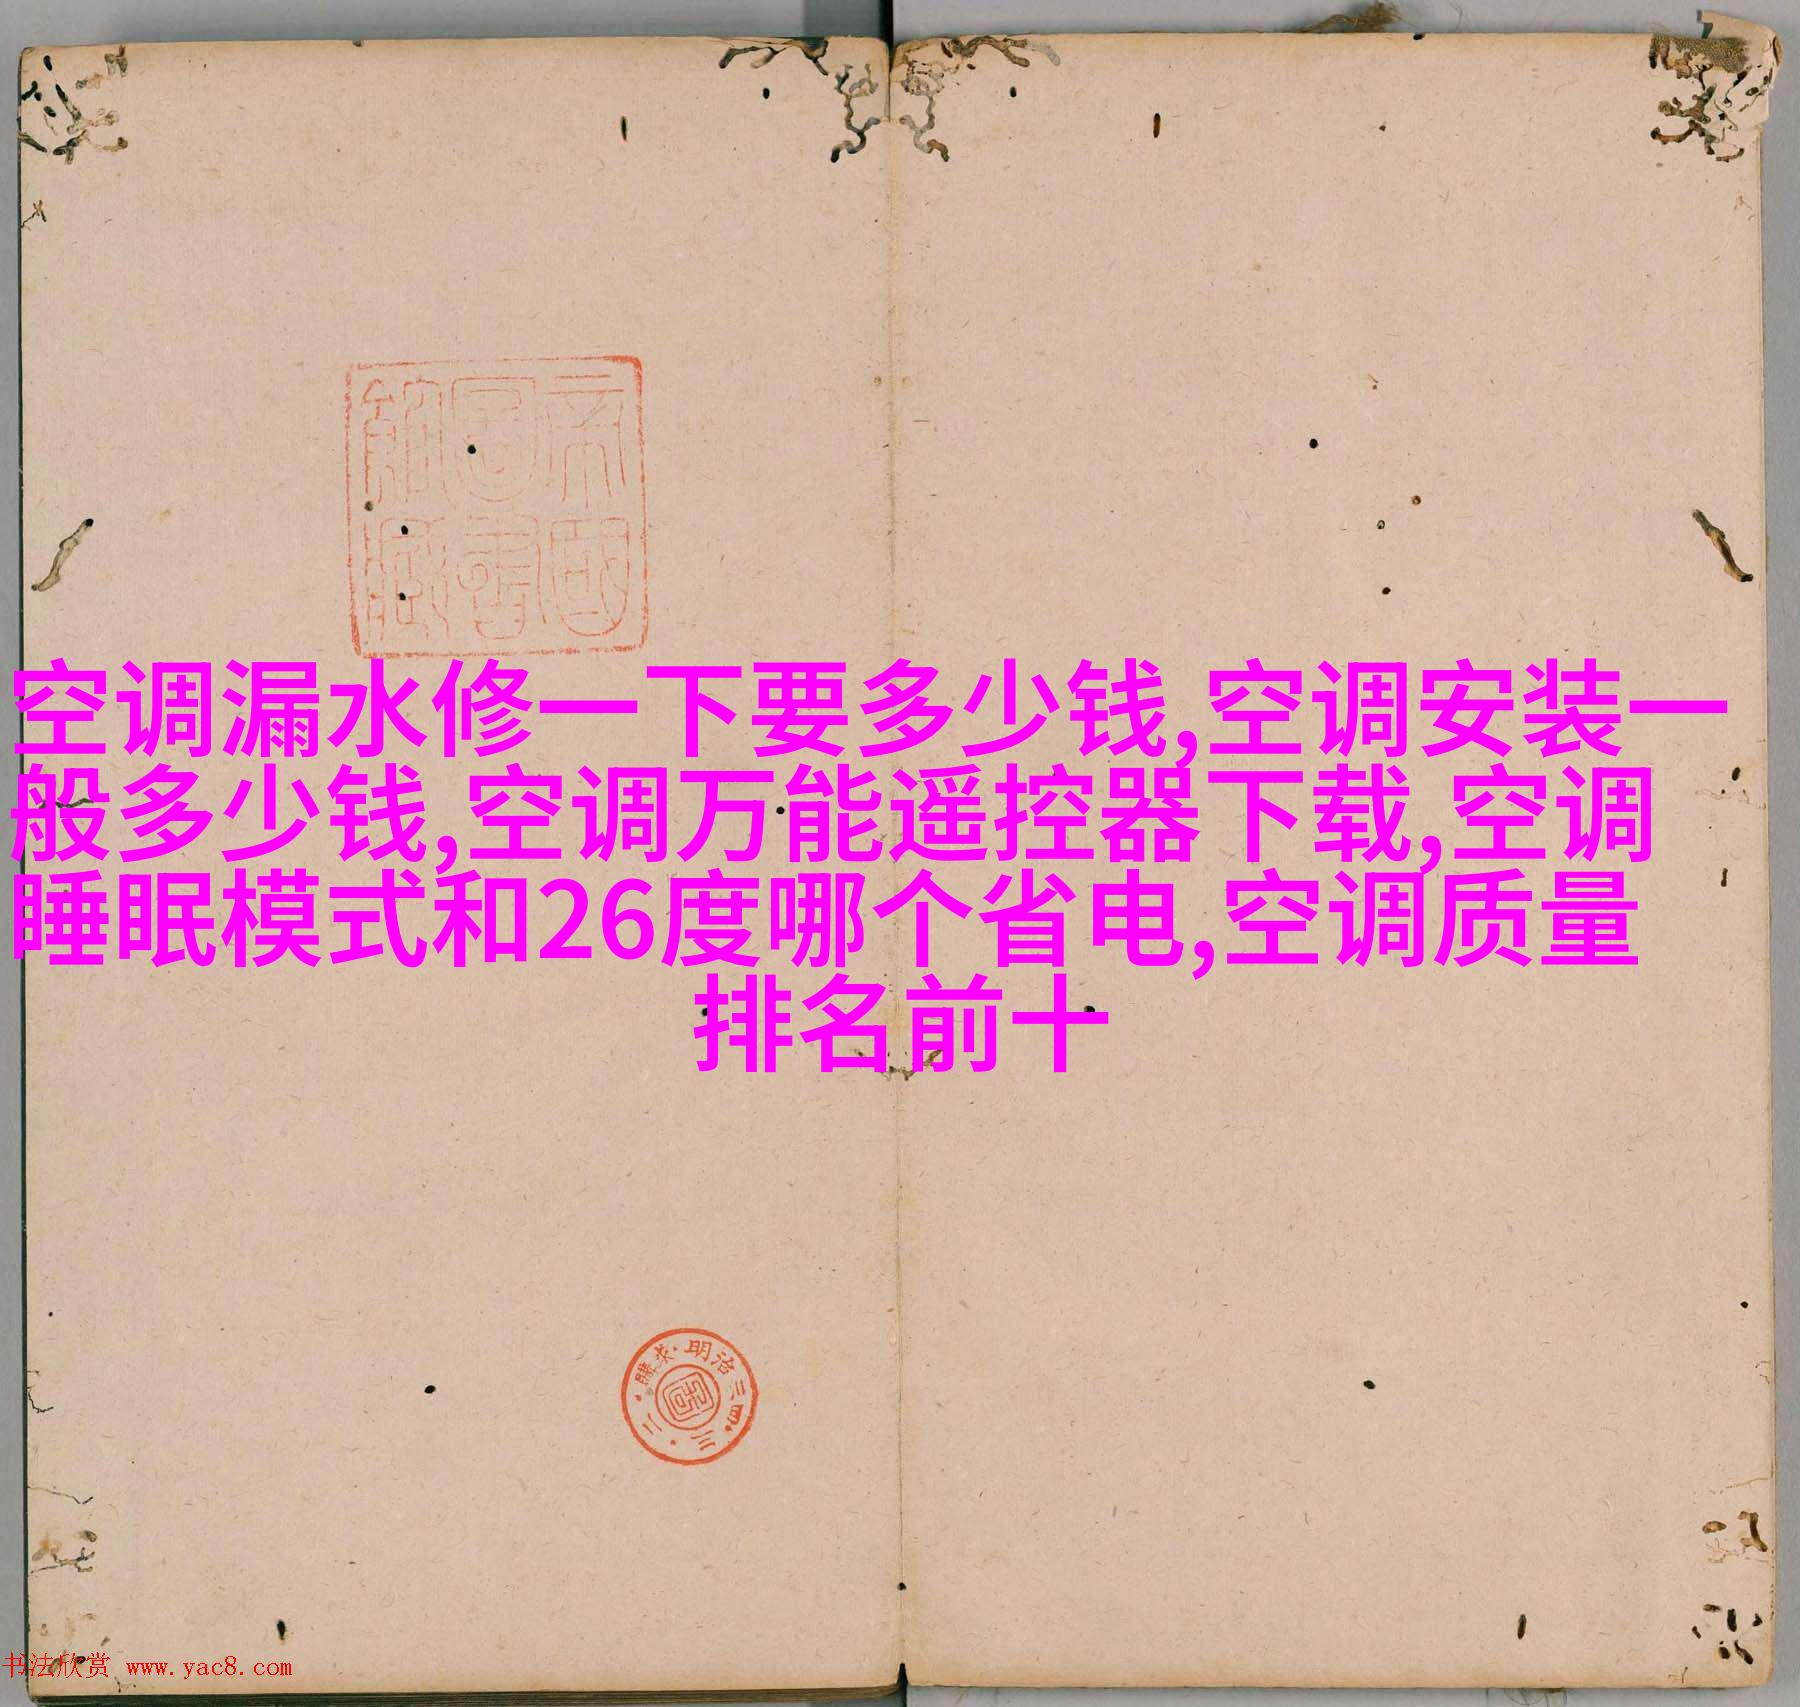 帝國
圖書
館藏
空调漏水修一下要多少钱,空调安装一
般多少钱,空调万能遥控器下载,空调
睡眠模式和26度哪个省电,空调质量
排名前十
明治三四·三·二·購求·
书法欣赏 www.yac8.com